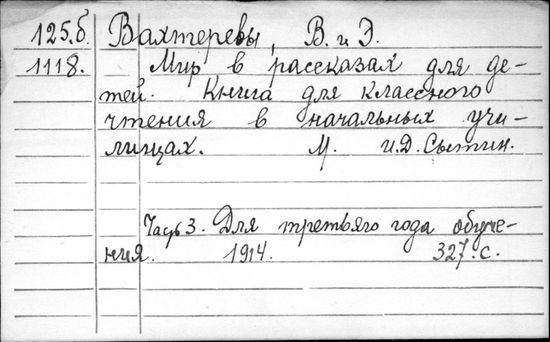 125.б. Вахтеревы, В. и Э.
1118. Мир в рассказах для де-
тей. Книга для классного
чтения в начальных учи-
лищах. М. И.Д. Сытин.
Часть 3. Для третьяго года обуче-
ния. 1914. 327. с.